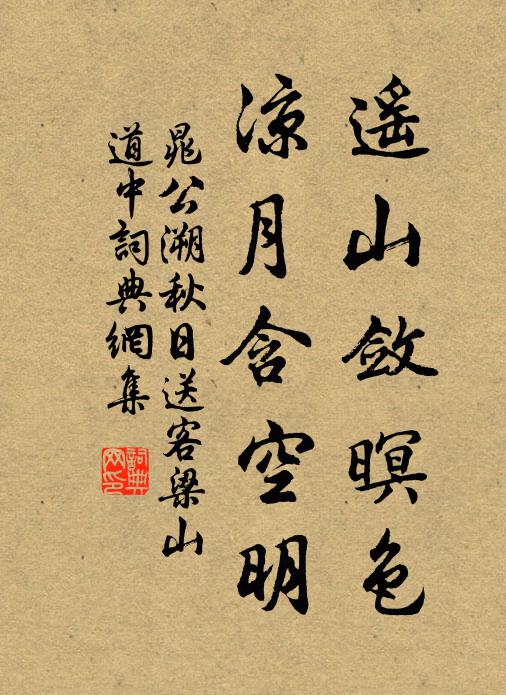 遥山斂暝色
凉月含空明
晁公溯秋日送客梁山
道中詞典網集
詞典
网印